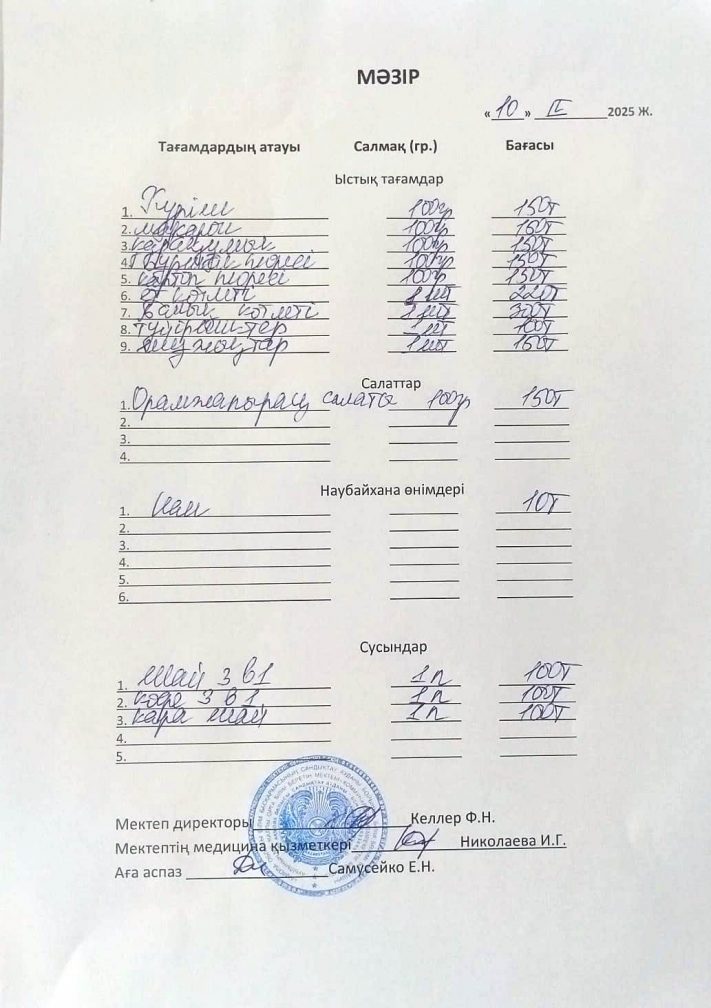 МӘЗІР
«10» IV 2025 Ж.
Тағамдардың атауы Салмақ (гр.) Бағасы
Ыстық тағамдар
1. Күріш 100гр 150т
2. макарон 100гр 150т
3. қарақұмық 100гр 150т
4. пюресі 100гр 150т
5. картоп пюресі 100гр 150т
6. котлеті 1 шт 220т
7. балық котлеті 1 шт 300т
8. 1 шт 100т
9. 1 шт 150т
Салаттар
1. Орамжапырақ салаты 100гр 150т
2.
3.
4.
Наубайхана өнімдері
1. Нан 10т
2.
3.
4.
5.
6.
Сусындар
1. Шай 3 в1 1 п 100т
2. кофе 3 в1 1 п 100т
3. қара шай 1 п 100т
4.
5.
Мектеп директоры Келлер Ф.Н.
Мектептің медицина қызметкері Николаева И.Г.
Аға аспаз Самусейко Е.Н.